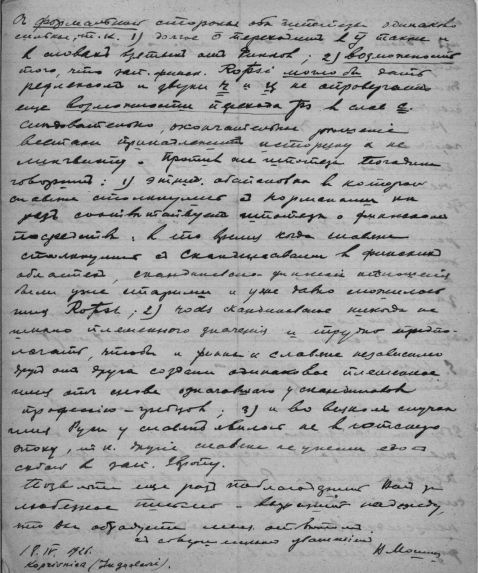 С формальной стороны обе гипотезы одинаково
т.к. 1) долгое ō переходит в ū также и
в словах взятых от финнов; 2) возможность
того, что зап. финск. Rōtsi могло бы дать
рефлексом и звуки ч и ц не опровергает
еще возможности перехода ts в слав с.
Следовательно, окончательное решение
вопроса принадлежит историку а не
лингвисту. Против же гипотезы Погодина
говорит: 1) этнич. обстановка в которой
славяне столкнулись с норманами как
раз соответствует гипотезе о финском
посредстве: в то время когда славяне
столкнулись со Скандинавами в финских
областях, скандинавско финские отношения
были уже старыми и уже давно сложилось
имя Rōtsi; 2) rods скандинавское никогда не
имело племенного значения и трудно предпо-
лагать, чтобы и финны и славяне независимо
друг от друга создали одинаковое племенное
имя от слова означавшего у скандинавов
профессию – гребцов; 3) и во всяком случае
имя Русь у славян явилось не в готскую
эпоху, т.к. другие славяне не унесли его с
собой в зап. Европу.
Позвольте еще раз поблагодарить Вас за
любезное письмо и выразить надежду,
что Вы обрадуете меня ответом.
С совершенным уважением
18. IV. 1926. Н. Мошин
Koprivnica (Jugoslavi).